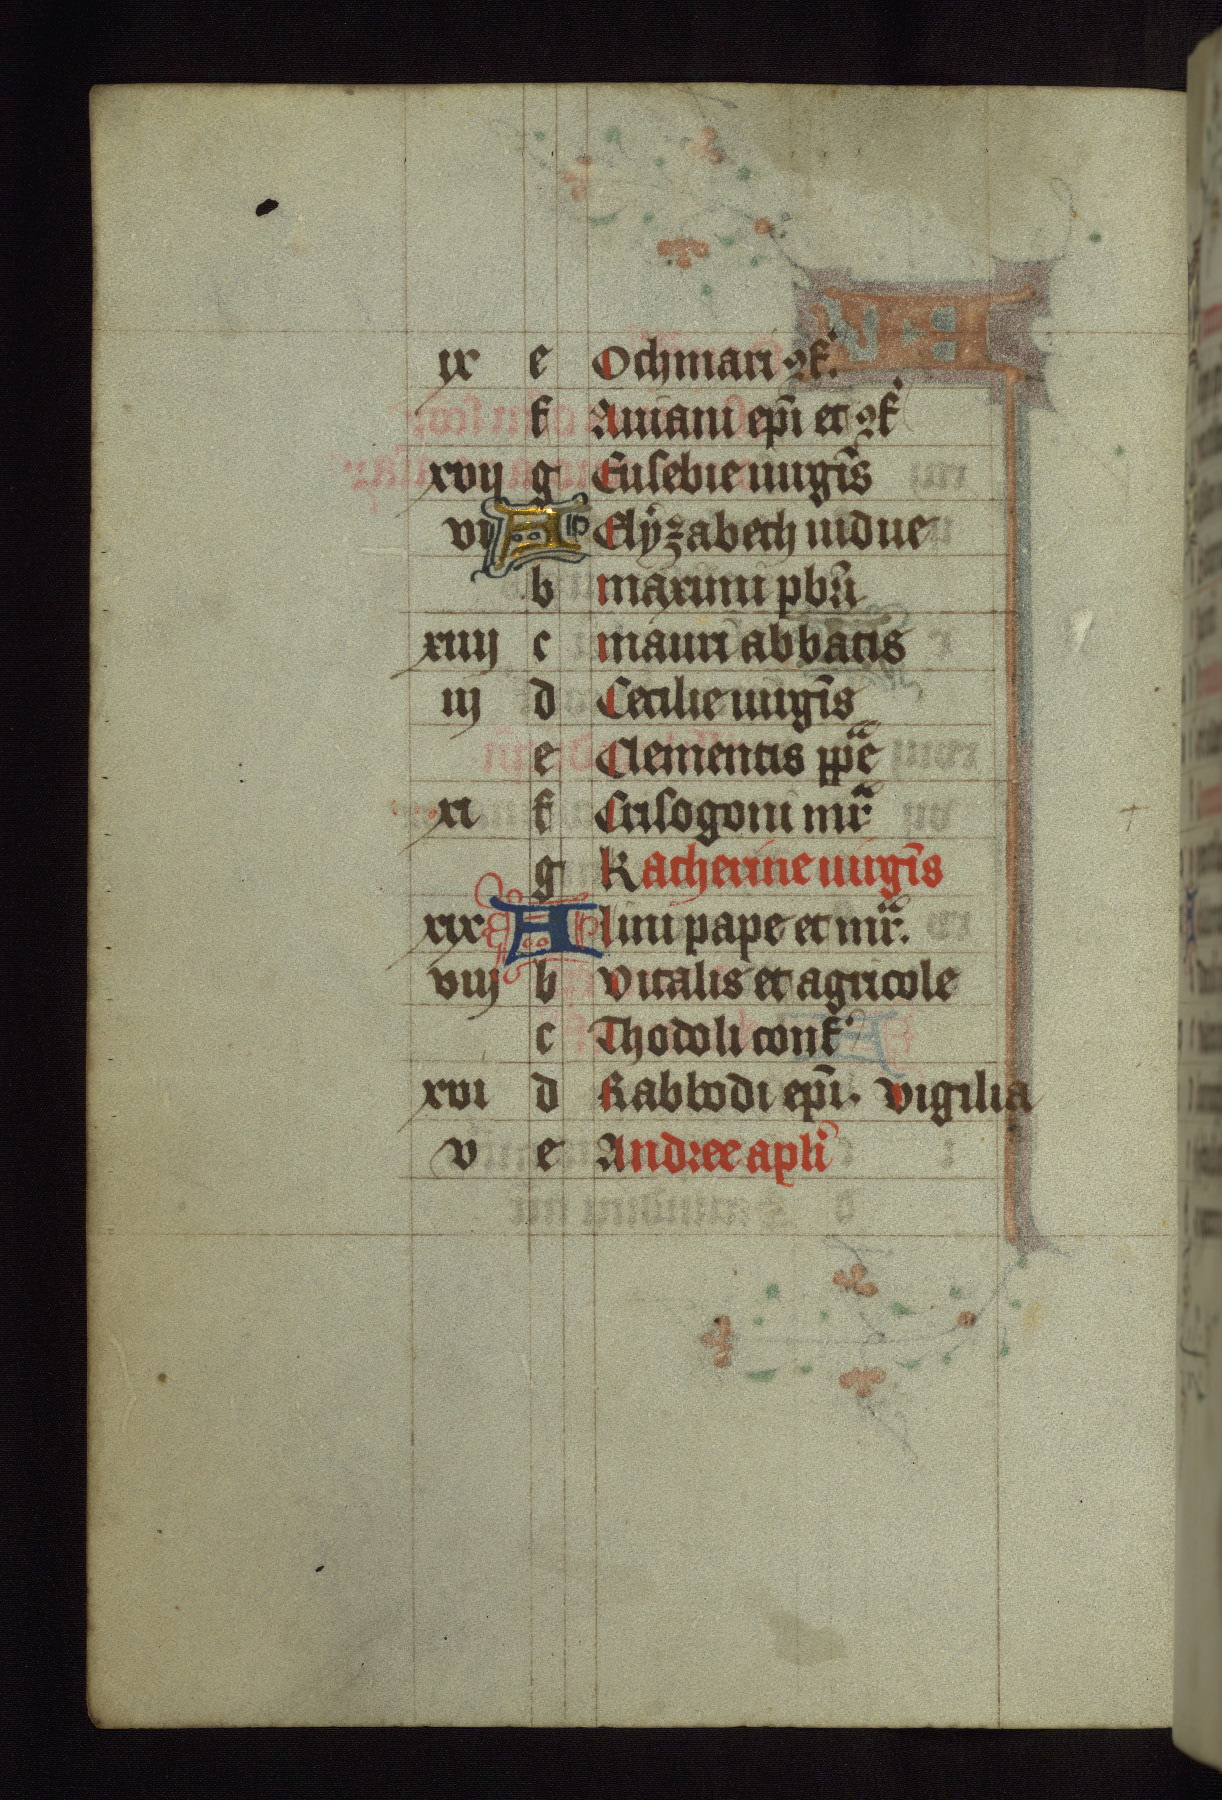 ix e Othmari ꝯf.
f Aniani ep̄i et ꝯf
xvij g Eusebie uirgīs
vi A Elÿzabeth uidue
b maximi pbr̄i
xiiij c mauri abbatis
iij d Cecilie uirgīs
e Clementis pp̄e
xi f Crisogoni mr̄
g Katherine uirgīs
xix A lini pape et mr̄.
viij b vitalis et agricole
c Thodoli conf
xvi d Rabbodi ep̄i. vigilia
v e Andree apl̄i